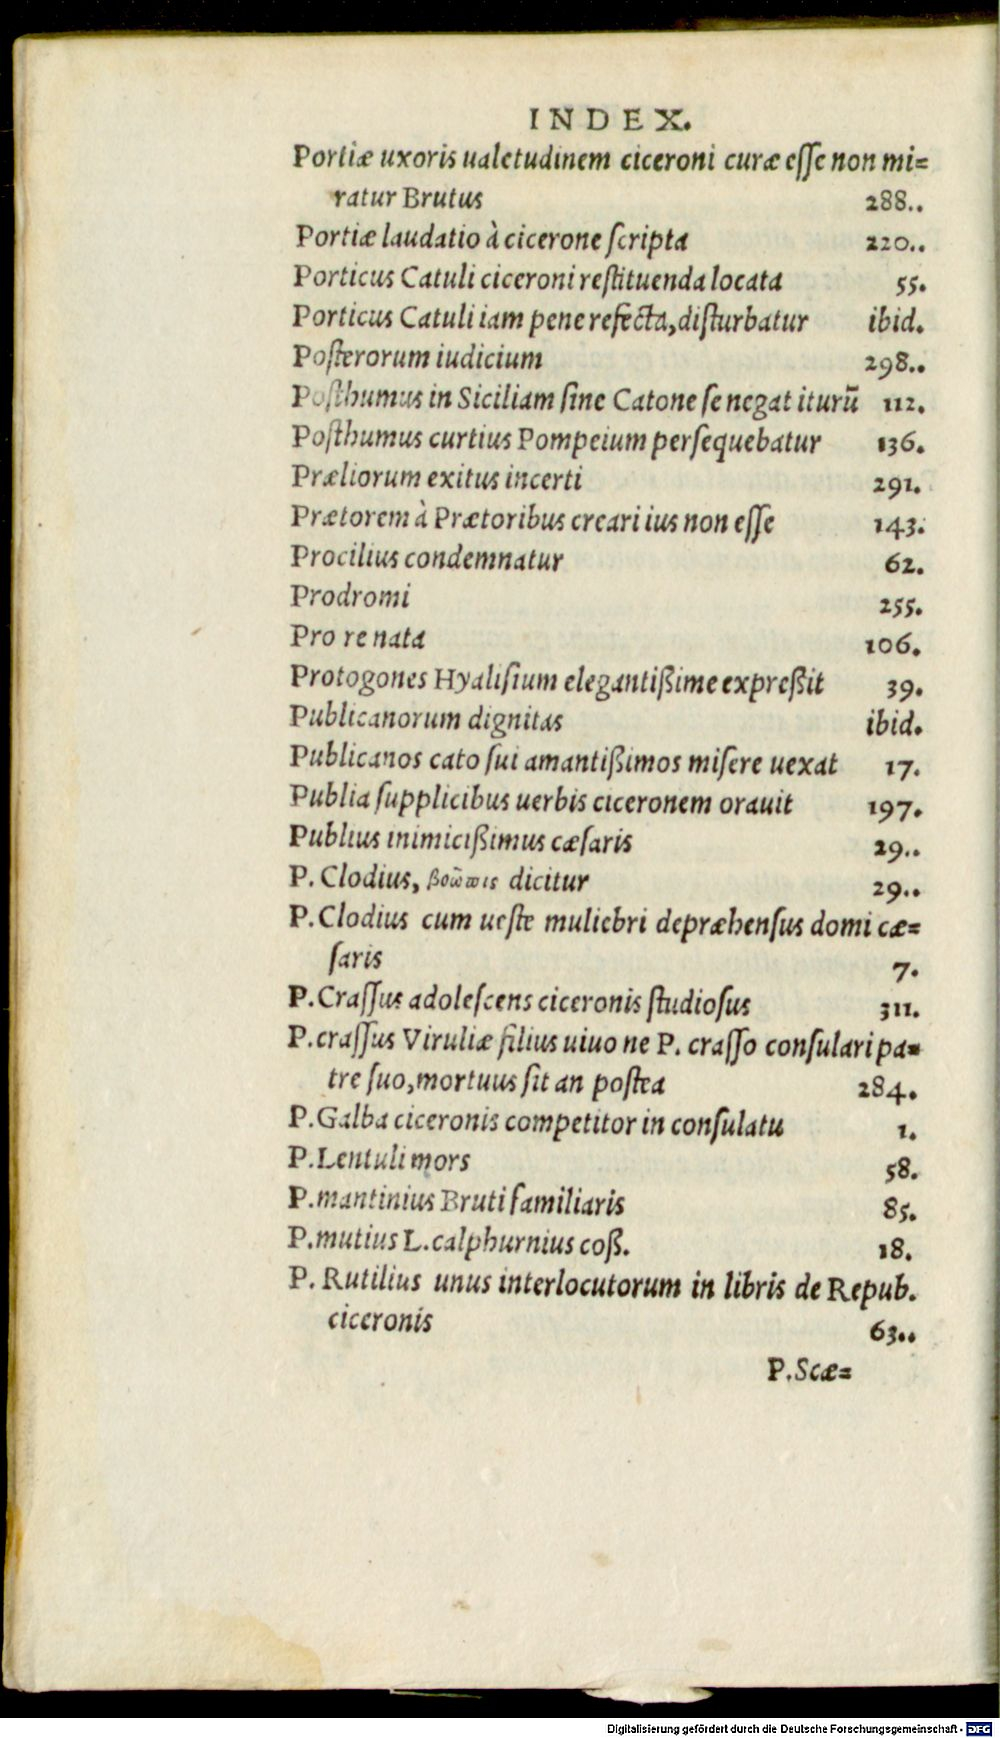 INDEX.
Portiæ uxoris ualetudinem ciceroni curæ eſſe non mi=
ratur Brutus 288..
Portiæ laudatio à cicerone ſcripta 220..
Porticus Catuli ciceroni reſtituenda locata 55.
Porticus Catuli iam pene refecta, diſturbatur ibid.
Poſterorum iudicium 298..
Poſthumus in Siciliam ſine Catone ſe negat iturũ 112.
Poſthumus curtius Pompeium perſequebatur 136.
Præliorum exitus incerti 291.
Prætorem à Prætoribus creari ius non eſſe 143.
Procilius condemnatur 62.
Prodromi 255.
Pro re nata 106.
Protogones Hyaliſium elegantißime expreßit 39.
Publicanorum dignitas ibid.
Publicanos cato ſui amantißimos miſere uexat 17.
Publia ſupplicibus uerbis ciceronem orauit 197.
Publius inimicißimus cæſaris 29..
P. Clodius, βοῶπις dicitur 29..
P. Clodius cum ueſte muliebri depræhenſus domi cæ=
ſaris 7.
P. Craſſus adoleſcens ciceronis ſtudioſus 311.
P. craſſus Viruliæ filius uiuo ne P. craſſo conſulari pa=
tre ſuo, mortuus ſit an poſtea 284.
P. Galba ciceronis competitor in conſulatu 1.
P. Lentuli mors 58.
P. mantinius Bruti familiaris 85.
P. mutius L. calphurnius coß. 18.
P. Rutilius unus interlocutorum in libris de Repub.
ciceronis 63..
P. Scæ=
Digitalisierung gefördert durch die Deutsche Forschungsgemeinschaft - DFG